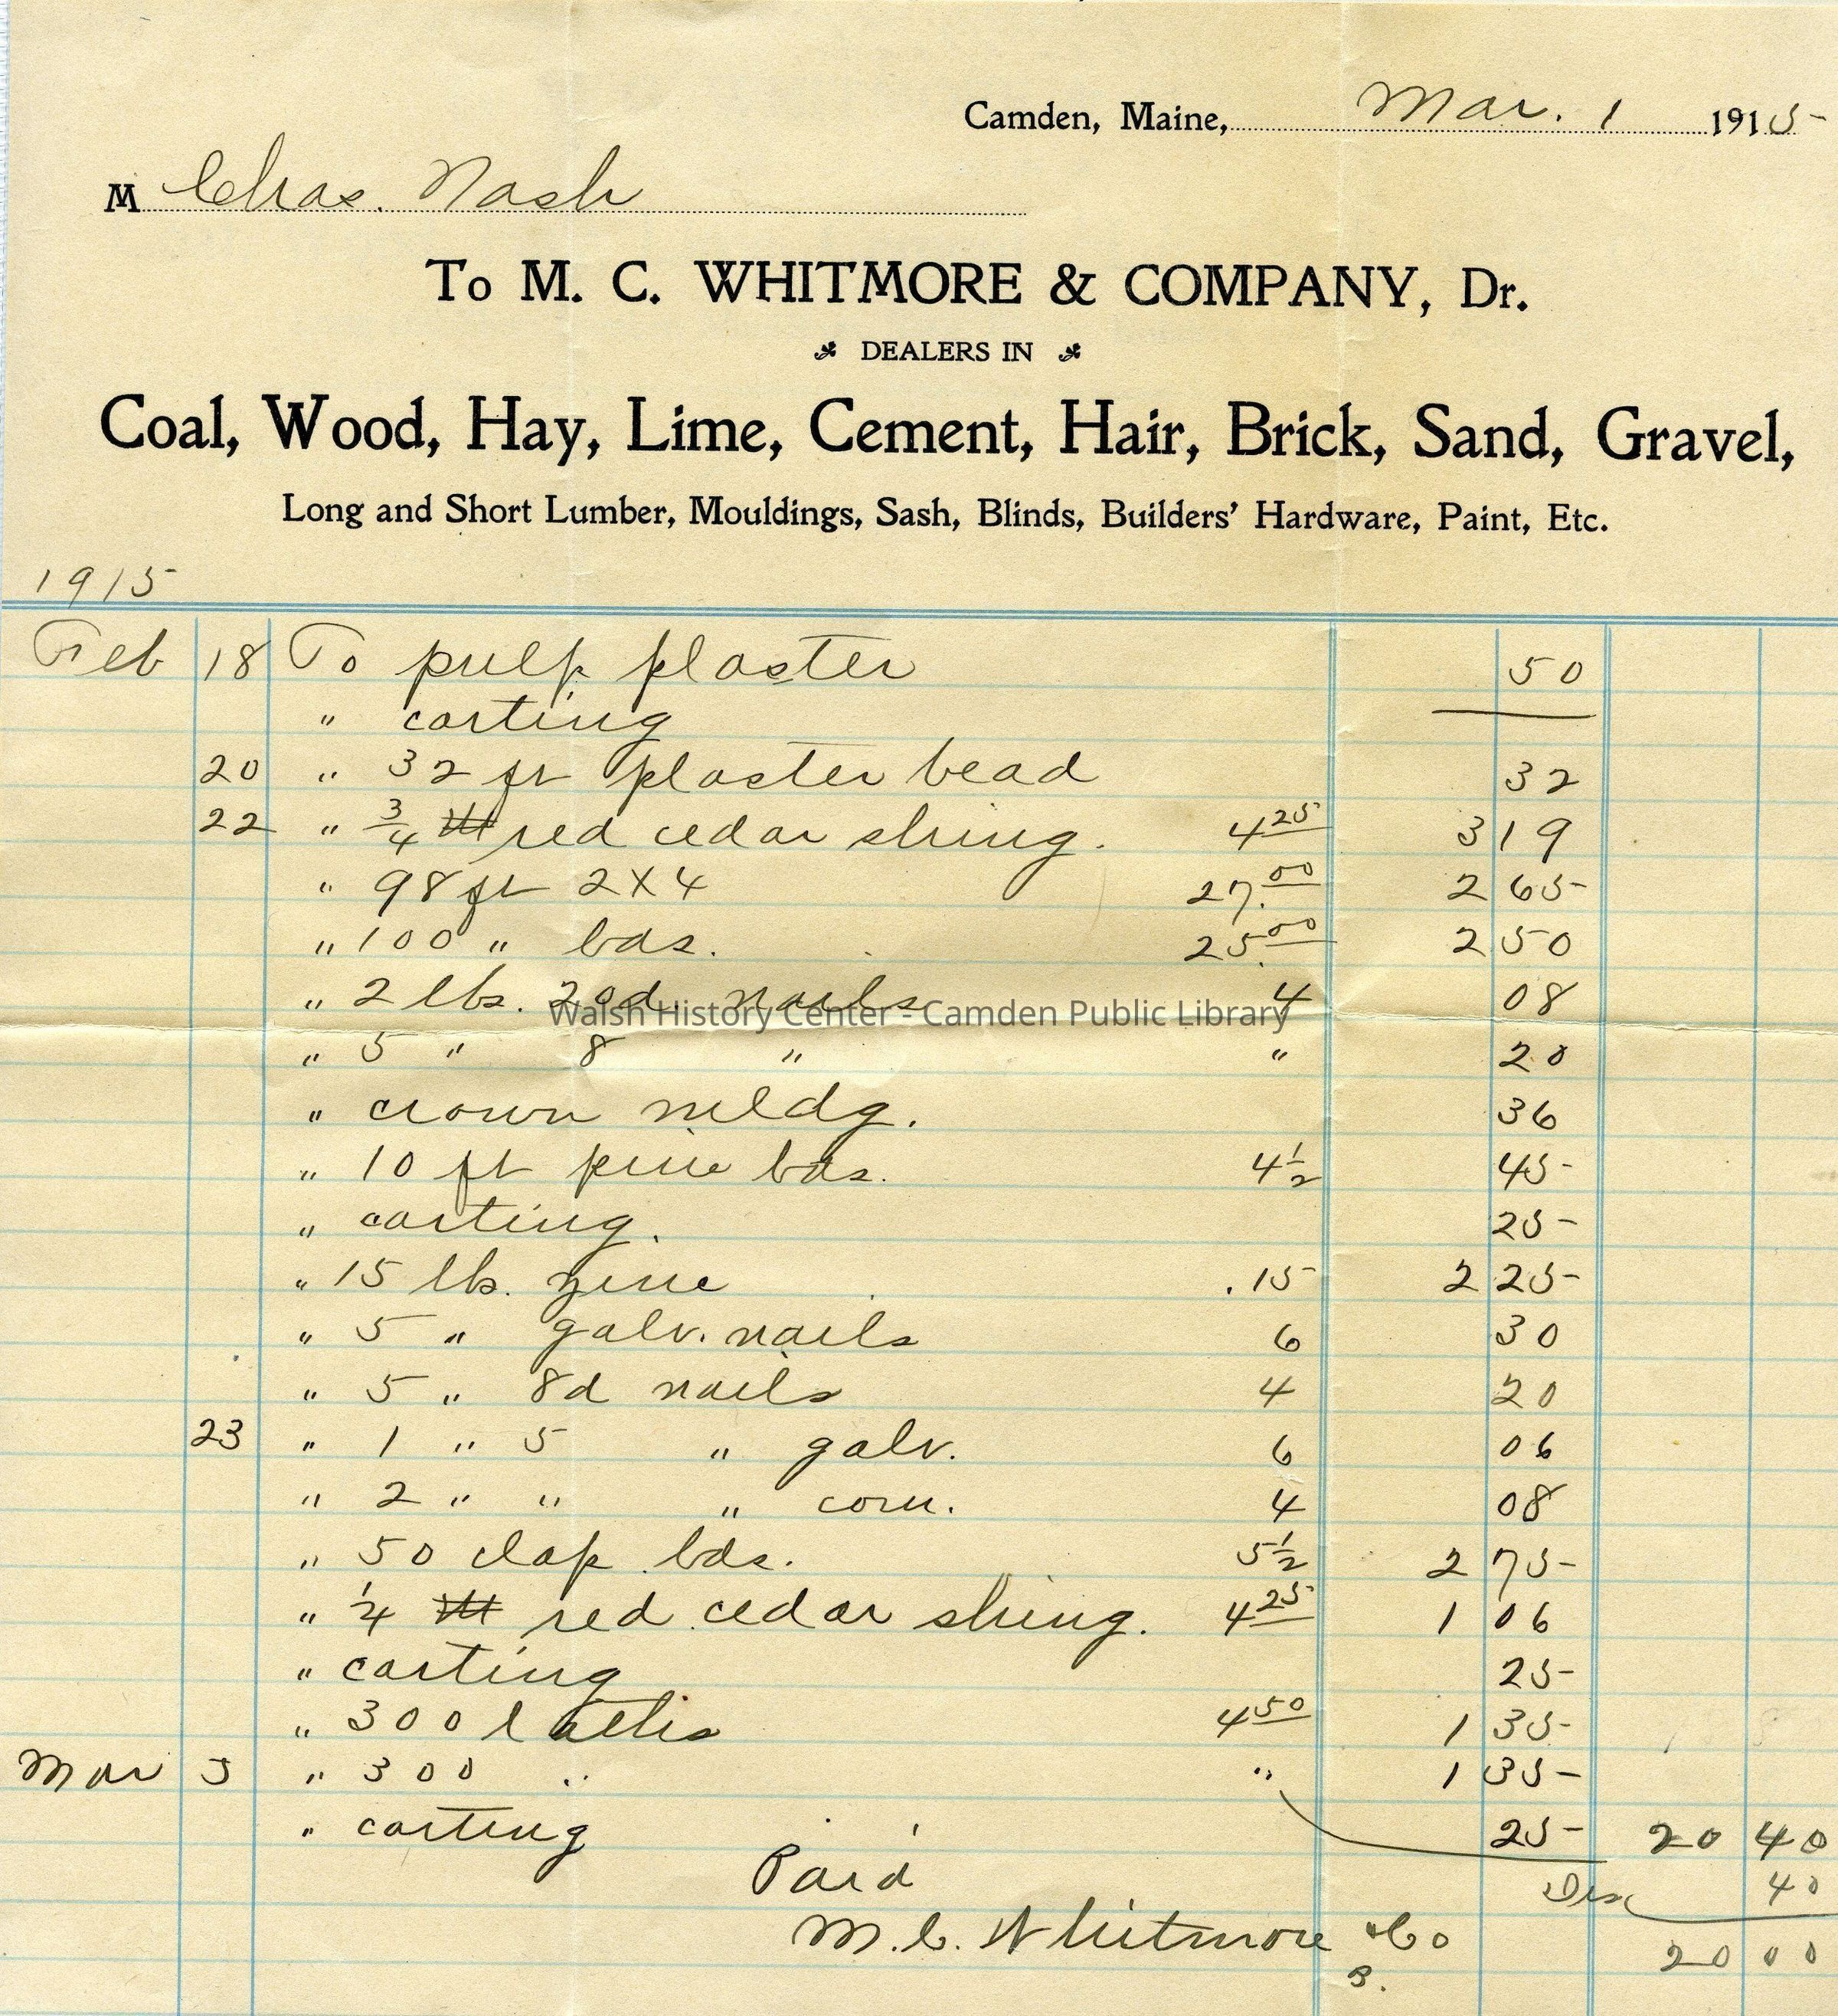 Camden, Maine, Mar. 1 1915
M Chas. Nash
To M. C. WHITMORE & COMPANY, Dr.
DEALERS IN
Coal, Wood, Hay, Lime, Cement, Hair, Brick, Sand, Gravel,
Long and Short Lumber, Mouldings, Sash, Blinds, Builders' Hardware, Paint, Etc.
1915
Feb 18 To pulp plaster 50
" carting
20 " 32 ft plaster bead 32
22 " 3/4 M red cedar shing. 4 25 3 19
" 98 ft 2X4 27.00 2 65
" 100 " bds. 25.00 2 50
" 2 lbs. 20d. nails 4 08
Walsh History Center - Camden Public Library
" 5 " 8 " " 20
" crown mldg. 36
" 10 ft pine bds. 4 1/2 45
" carting. 25
" 15 lb. zinc .15 2 25
" 5 " galv. nails 6 30
" 5 " 8d nails 4 20
23 " 1 " 5 " galv. 6 06
" 2 " " " com. 4 08
" 50 clap bds. 5 1/2 2 75
" 1/4 M red cedar shing. 4 25 1 06
" carting 25
" 300 laths 4 50 1 35
Mar 5 " 300 " " 1 35
" carting 25 20 40
Paid Disc 40
M. C. Whitmore & Co 20 00
B.